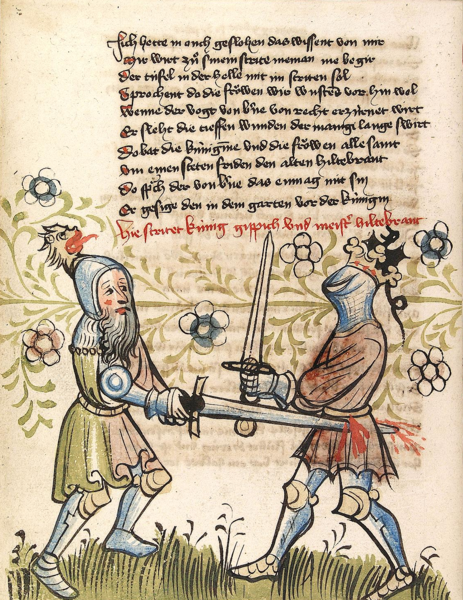 Sich hette m ouch geslohen das wissent von mir
wir wirt zů sinem strite nieman me begir
Der tüfel in der helle mit im striten sol
Sprochent do die frowen wir wusten vor hin wol
wenne der vogt von bne von recht erzurnet wirt
Er sleht die tieffen wunden der manig lange swirt
Do bat die kunigine und die frowen alle samt
um einen steten friden den alten hiltebrant
Do sprch der von bne das en mag nit sin
Er gesige den in dem garten vor der kunigin
hie stritet kunig gippich und meistr hiltebrant